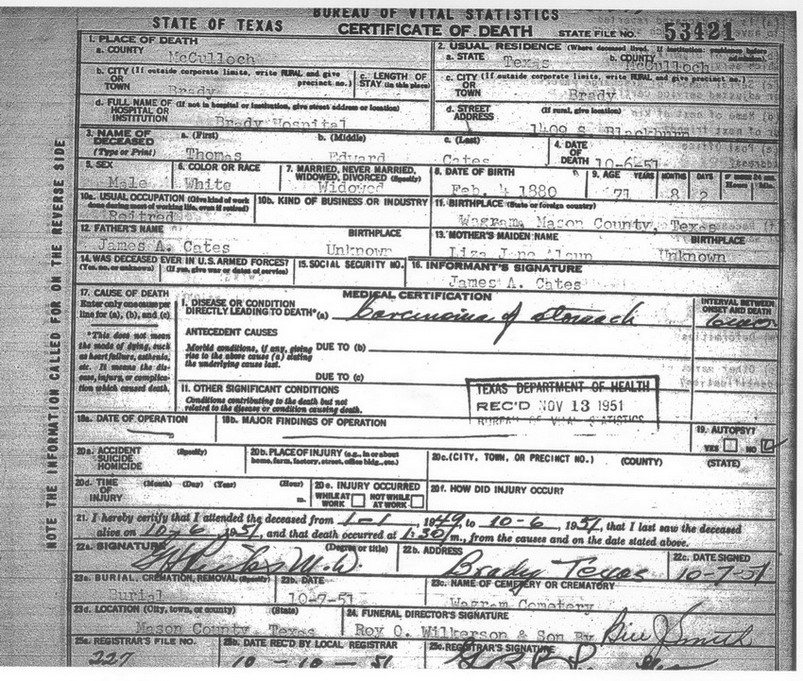 BUREAU OF VITAL STATISTICS
STATE OF TEXAS
CERTIFICATE OF DEATH
STATE FILE NO. 53421
NOTE THE INFORMATION CALLED FOR ON THE REVERSE SIDE
1. PLACE OF DEATH
a. COUNTY
McCulloch
2. USUAL RESIDENCE (Where deceased lived. If institution: residence before admission.)
a. STATE Texas b. COUNTY McCulloch
b. CITY (If outside corporate limits, write RURAL and give precinct no.) OR TOWN
Brady
c. LENGTH OF STAY (in this place)
c. CITY (If outside corporate limits, write RURAL and give precinct no.) OR TOWN
Brady
d. FULL NAME OF HOSPITAL OR INSTITUTION (If not in hospital or institution, give street address or location)
Brady Hospital
d. STREET ADDRESS (If rural, give location)
1409 S. Blackburn
3. NAME OF DECEASED (Type or Print)
a. (First) Thomas
b. (Middle) Edward
c. (Last) Cates
4. DATE OF DEATH 10-6-51
5. SEX
Male
6. COLOR OR RACE
White
7. MARRIED, NEVER MARRIED, WIDOWED, DIVORCED (Specify)
Widowed
8. DATE OF BIRTH
Feb. 4 1880
9. AGE YEARS MONTHS DAYS IF UNDER 24 HRS. Hours Min.
71 8 2
10a. USUAL OCCUPATION (Give kind of work done during most of working life, even if retired)
Reitred
10b. KIND OF BUSINESS OR INDUSTRY
11. BIRTHPLACE (State or foreign country)
Wagram, Mason County, Texas
12. FATHER'S NAME BIRTHPLACE
James A. Cates Unknown
13. MOTHER'S MAIDEN NAME BIRTHPLACE
Liza Jane Unknown
14. WAS DECEASED EVER IN U.S. ARMED FORCES?
(Yes, no, or unknown) (If yes, give war or dates of service)
15. SOCIAL SECURITY NO.
16. INFORMANT'S SIGNATURE
James A. Cates
17. CAUSE OF DEATH
Enter only one cause per line for (a), (b), and (c)
*This does not mean the mode of dying, such as heart failure, asthenia, etc. It means the disease, injury, or complication which caused death.
MEDICAL CERTIFICATION
INTERVAL BETWEEN ONSET AND DEATH
I. DISEASE OR CONDITION
DIRECTLY LEADING TO DEATH* (a) Carcinoma of stomach
ANTECEDENT CAUSES
Morbid conditions, if any, giving rise to the above cause (a) stating the underlying cause last.
DUE TO (b)
DUE TO (c)
11. OTHER SIGNIFICANT CONDITIONS
Conditions contributing to the death but not related to the disease or condition causing death.
TEXAS DEPARTMENT OF HEALTH
REC'D NOV 13 1951
BUREAU OF VITAL STATISTICS
18a. DATE OF OPERATION
18b. MAJOR FINDINGS OF OPERATION
19. AUTOPSY?
YES NO
20a. ACCIDENT SUICIDE HOMICIDE (Specify)
20b. PLACE OF INJURY (e.g., in or about home, farm, factory, street, office bldg., etc.)
20c. (CITY, TOWN, OR PRECINCT NO.) (COUNTY) (STATE)
20d. TIME OF INJURY (Month) (Day) (Year) (Hour) m.
20e. INJURY OCCURRED
WHILE AT WORK NOT WHILE AT WORK
20f. HOW DID INJURY OCCUR?
21. I hereby certify that I attended the deceased from 1-1, 1949, to 10-6, 1951, that I last saw the deceased
alive on 10-6, 1951, and that death occurred at 1:30 m., from the causes and on the date stated above.
22a. SIGNATURE (Degree or title)
M.D.
22b. ADDRESS
Brady Texas
22c. DATE SIGNED
10-7-51
23a. BURIAL, CREMATION, REMOVAL (Specify)
Burial
23b. DATE
10-7-51
23c. NAME OF CEMETERY OR CREMATORY
Wagram Cemetery
23d. LOCATION (City, town, or county) (State)
Mason County, Texas
24. FUNERAL DIRECTOR'S SIGNATURE
Roy O. Wilkerson & Son By Bill J. Smith
25a. REGISTRAR'S FILE NO.
227
25b. DATE REC'D BY LOCAL REGISTRAR
10 - 10 - 51
25c. REGISTRAR'S SIGNATURE